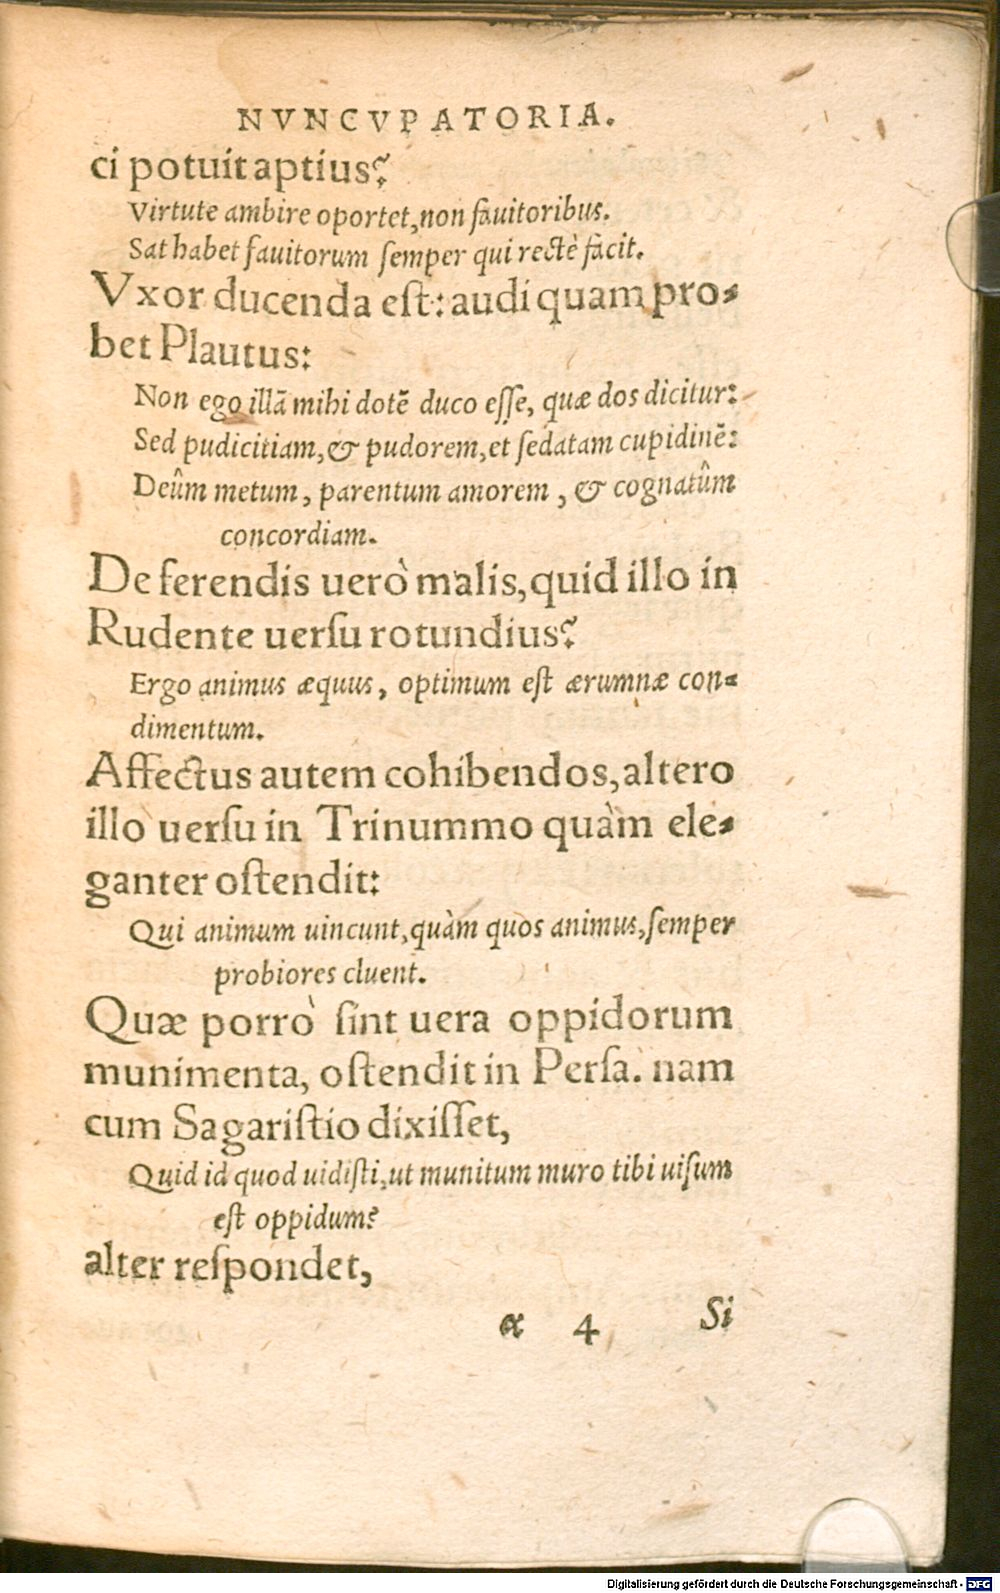 NVNCVPATORIA.
ci potuit aptius?
Virtute ambire oportet, non fauitoribus.
Sat habet fauitorum ſemper qui rectè facit.
Vxor ducenda eſt: audi quam pro-
bet Plautus:
Non ego illā mihi dotē duco eſſe, quæ dos dicitur:
Sed pudicitiam, & pudorem, et ſedatam cupidinē:
Deûm metum, parentum amorem, & cognatûm
concordiam.
De ferendis uerò malis, quid illo in
Rudente uerſu rotundius?
Ergo animus æquus, optimum eſt ærumnæ con-
dimentum.
Affectus autem cohibendos, altero
illo uerſu in Trinummo quàm ele-
ganter oſtendit:
Qui animum uincunt, quàm quos animus, ſemper
probiores cluent.
Quæ porrò ſint uera oppidorum
munimenta, oſtendit in Perſa. nam
cum Sagariſtio dixiſſet,
Quid id quod uidiſti, ut munitum muro tibi uiſum
eſt oppidum?
alter reſpondet,
α 4 Si
Digitalisierung gefördert durch die Deutsche Forschungsgemeinschaft - DFG